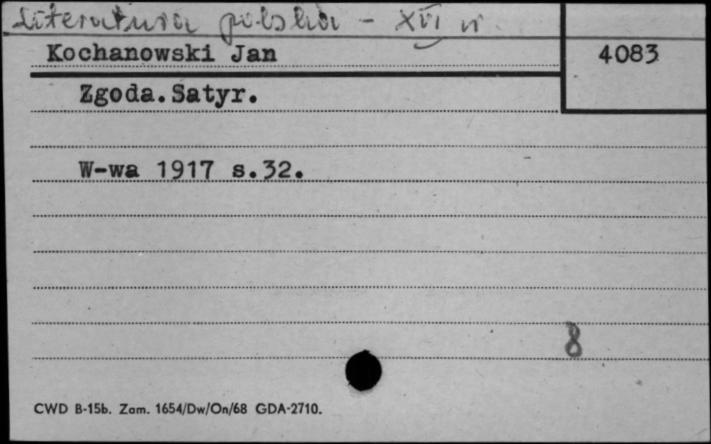 Literatura polska - XVI w
Kochanowski Jan
4083
Zgoda.Satyr.
W-wa 1917 s.32.
8
CWD B-15b. Zam. 1654/Dw/On/68 GDA-2710.